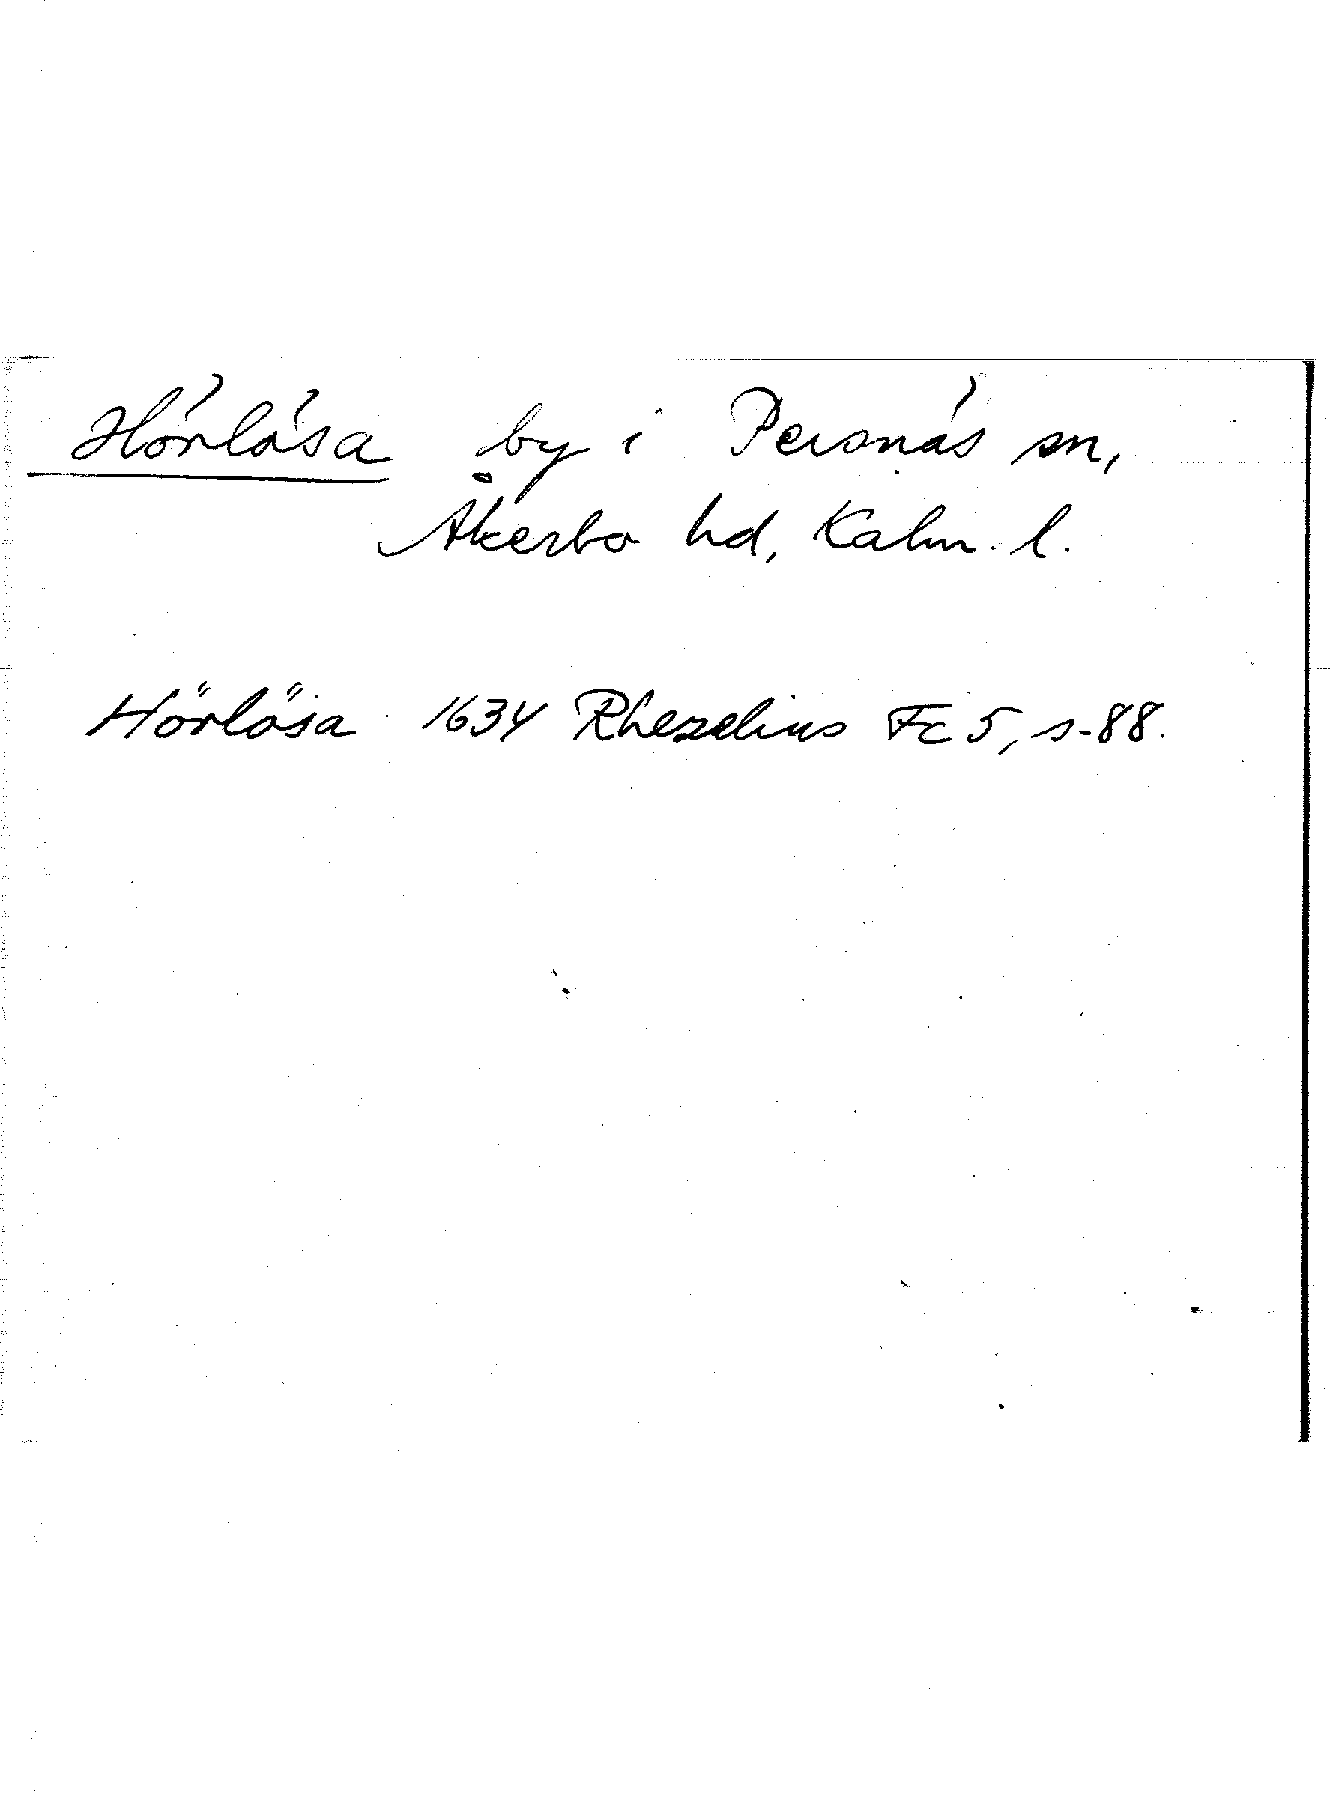 Hörlösa by i Persnäs sn,
Åkerbo hd, Kalm. l.
Hörlösa 1634 Rhezelius Fc 5, s. 88.